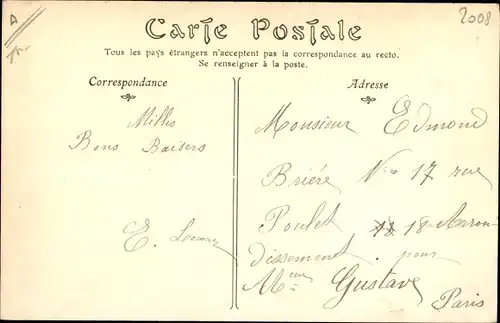 2008
A
Carte Postale
Tous les pays étrangers n'acceptent pas la correspondance au recto.
Se renseigner à la poste.
Correspondance
Milles
Bons Baisers
E.
Adresse
Monsieur Edmond
Brière No 17 rue
Poulet 18 18-Arron-
dissement pour
Gustave
Paris